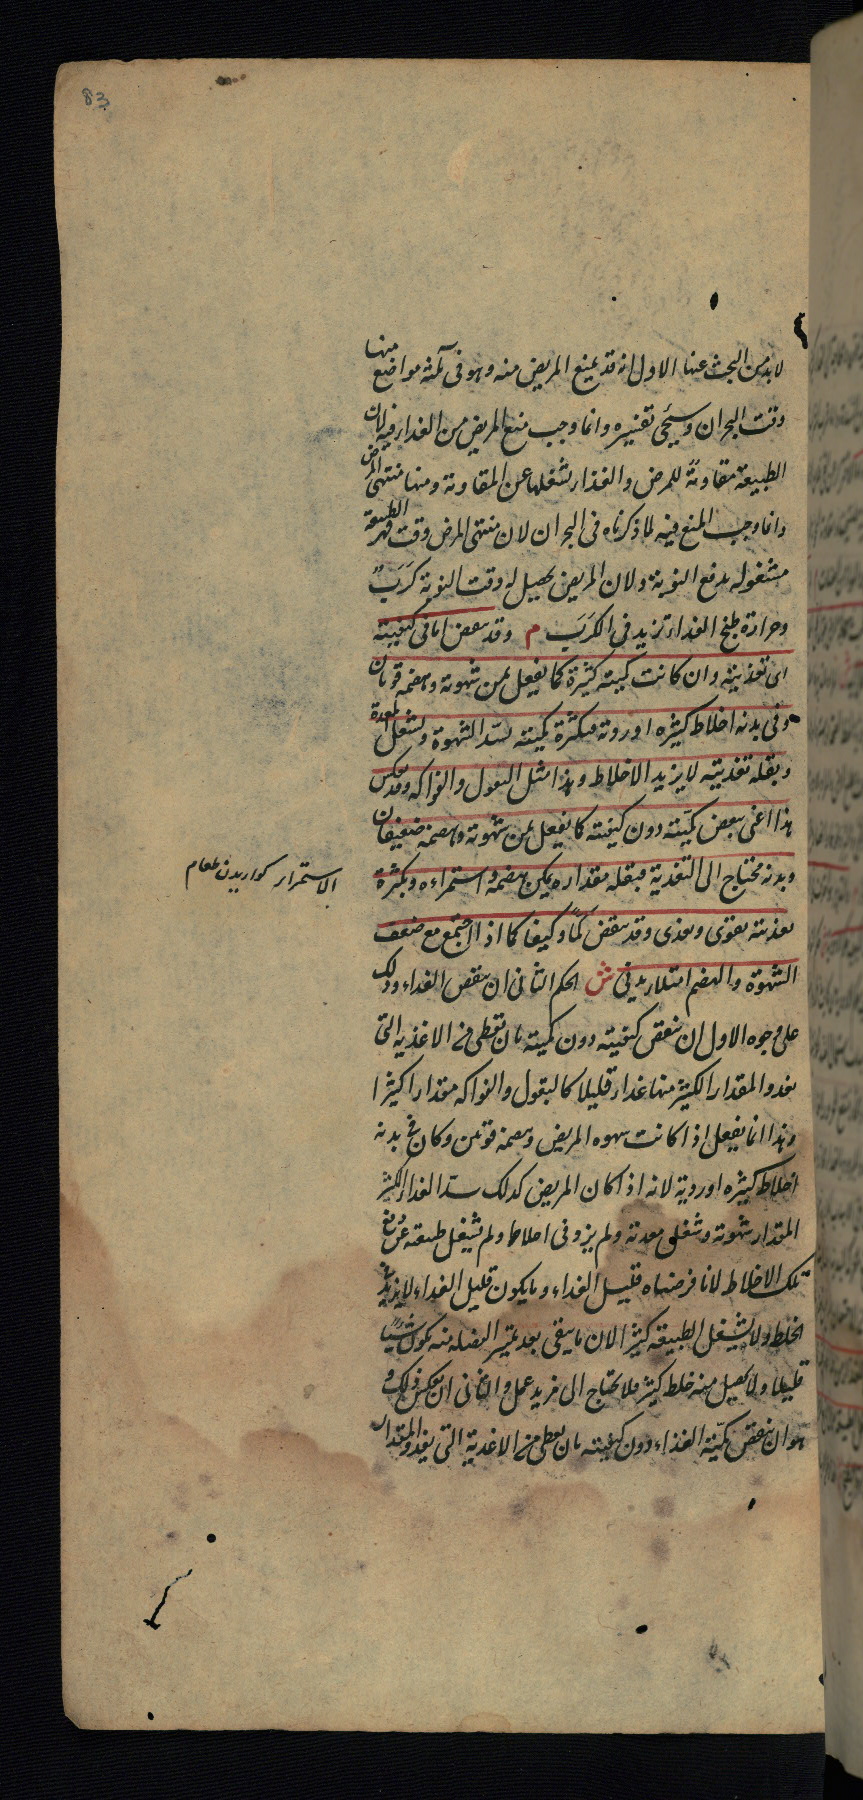 83
لابد من البحث عنها الاول انه قد يمنع المريض منه وهو فى ثلثة مواضع منها
وقت البحران وسيجئ تفسيره وانما وجب منع المريض من الغذاء فيه لان
الطبيعة مقاومة للمرض والغذاء يشغلها عن المقاومة ومنها منتهى المرض
وانما وجب المنع فيه لما ذكرناه فى البحران لان منتهى المرض وقت قهر الطبيعة
مشغوله بدفع النوبة ولان المريض يحصل له وقت النوبة كرب
وحرارة طبخ الغذاء تزيد فى الكرب م وقد ينقص اما فى كيفيته
اى تغذيته وان كانت كميته كثيرة كما يفعل بمن شهوته وهضمه قويان
وفى بدنه اخلاط كثيره او ردية فبكثرة كميته يسد الشهوة ويشغل المعدة
وبقلة تغذيته لا يزيد الاخلاط وهذا مثل البقول والفواكه وقد يعكس
هذا اعنى ينقص كميته دون كيفيته كما يفعل بمن شهوته وهضمه ضعيفان
وبدنه محتاج الى التغذية فبقلة مقداره يمكن هضمه واستمراءه وبكثرة
تغذيته يقوى ويغذى وقد ينقص كما وكيفا كما اذا اجتمع مع ضعف
الشهوة والهضم امتلاء بدنى ش الحكم الثانى ان ينقص الغذاء وذلك
على وجوه الاول ان ينقص كيفيته دون كميته بان يعطى من الاغذيه التى
يغذو المقدار الكثير منها غذاء قليلا كالبقول والفواكه مقدارا كثيرا
وهذا انما يفعل اذا كانت شهوه المريض وهضمه قويين وكان فى بدنه
اخلاط كثيره او ردية لانه اذا كان المريض كذلك سد الغذاء الكثير
المقدار شهوته وشغل معدته ولم يزد فى اخلاطه ولم يشغل طبيعته عن دفع
تلك الاخلاط لانا فرضناه قليل الغذاء وما يكون قليل الغذاء لا يزيد فى
الخلط ولا يشغل الطبيعة كثيرا لان ما يبقى بعد تميز الفضله منه يكون شيئا
قليلا ولا يحصل منه خلط كثير فلا يحتاج الى مزيد عمل والثانى ان يعكس ذلك و
هو ان ينقص كميته الغذاء دون كيفيته بان يعطى من الاغذية التى يغذو المقدار
الاستمرار كواريدن طعام